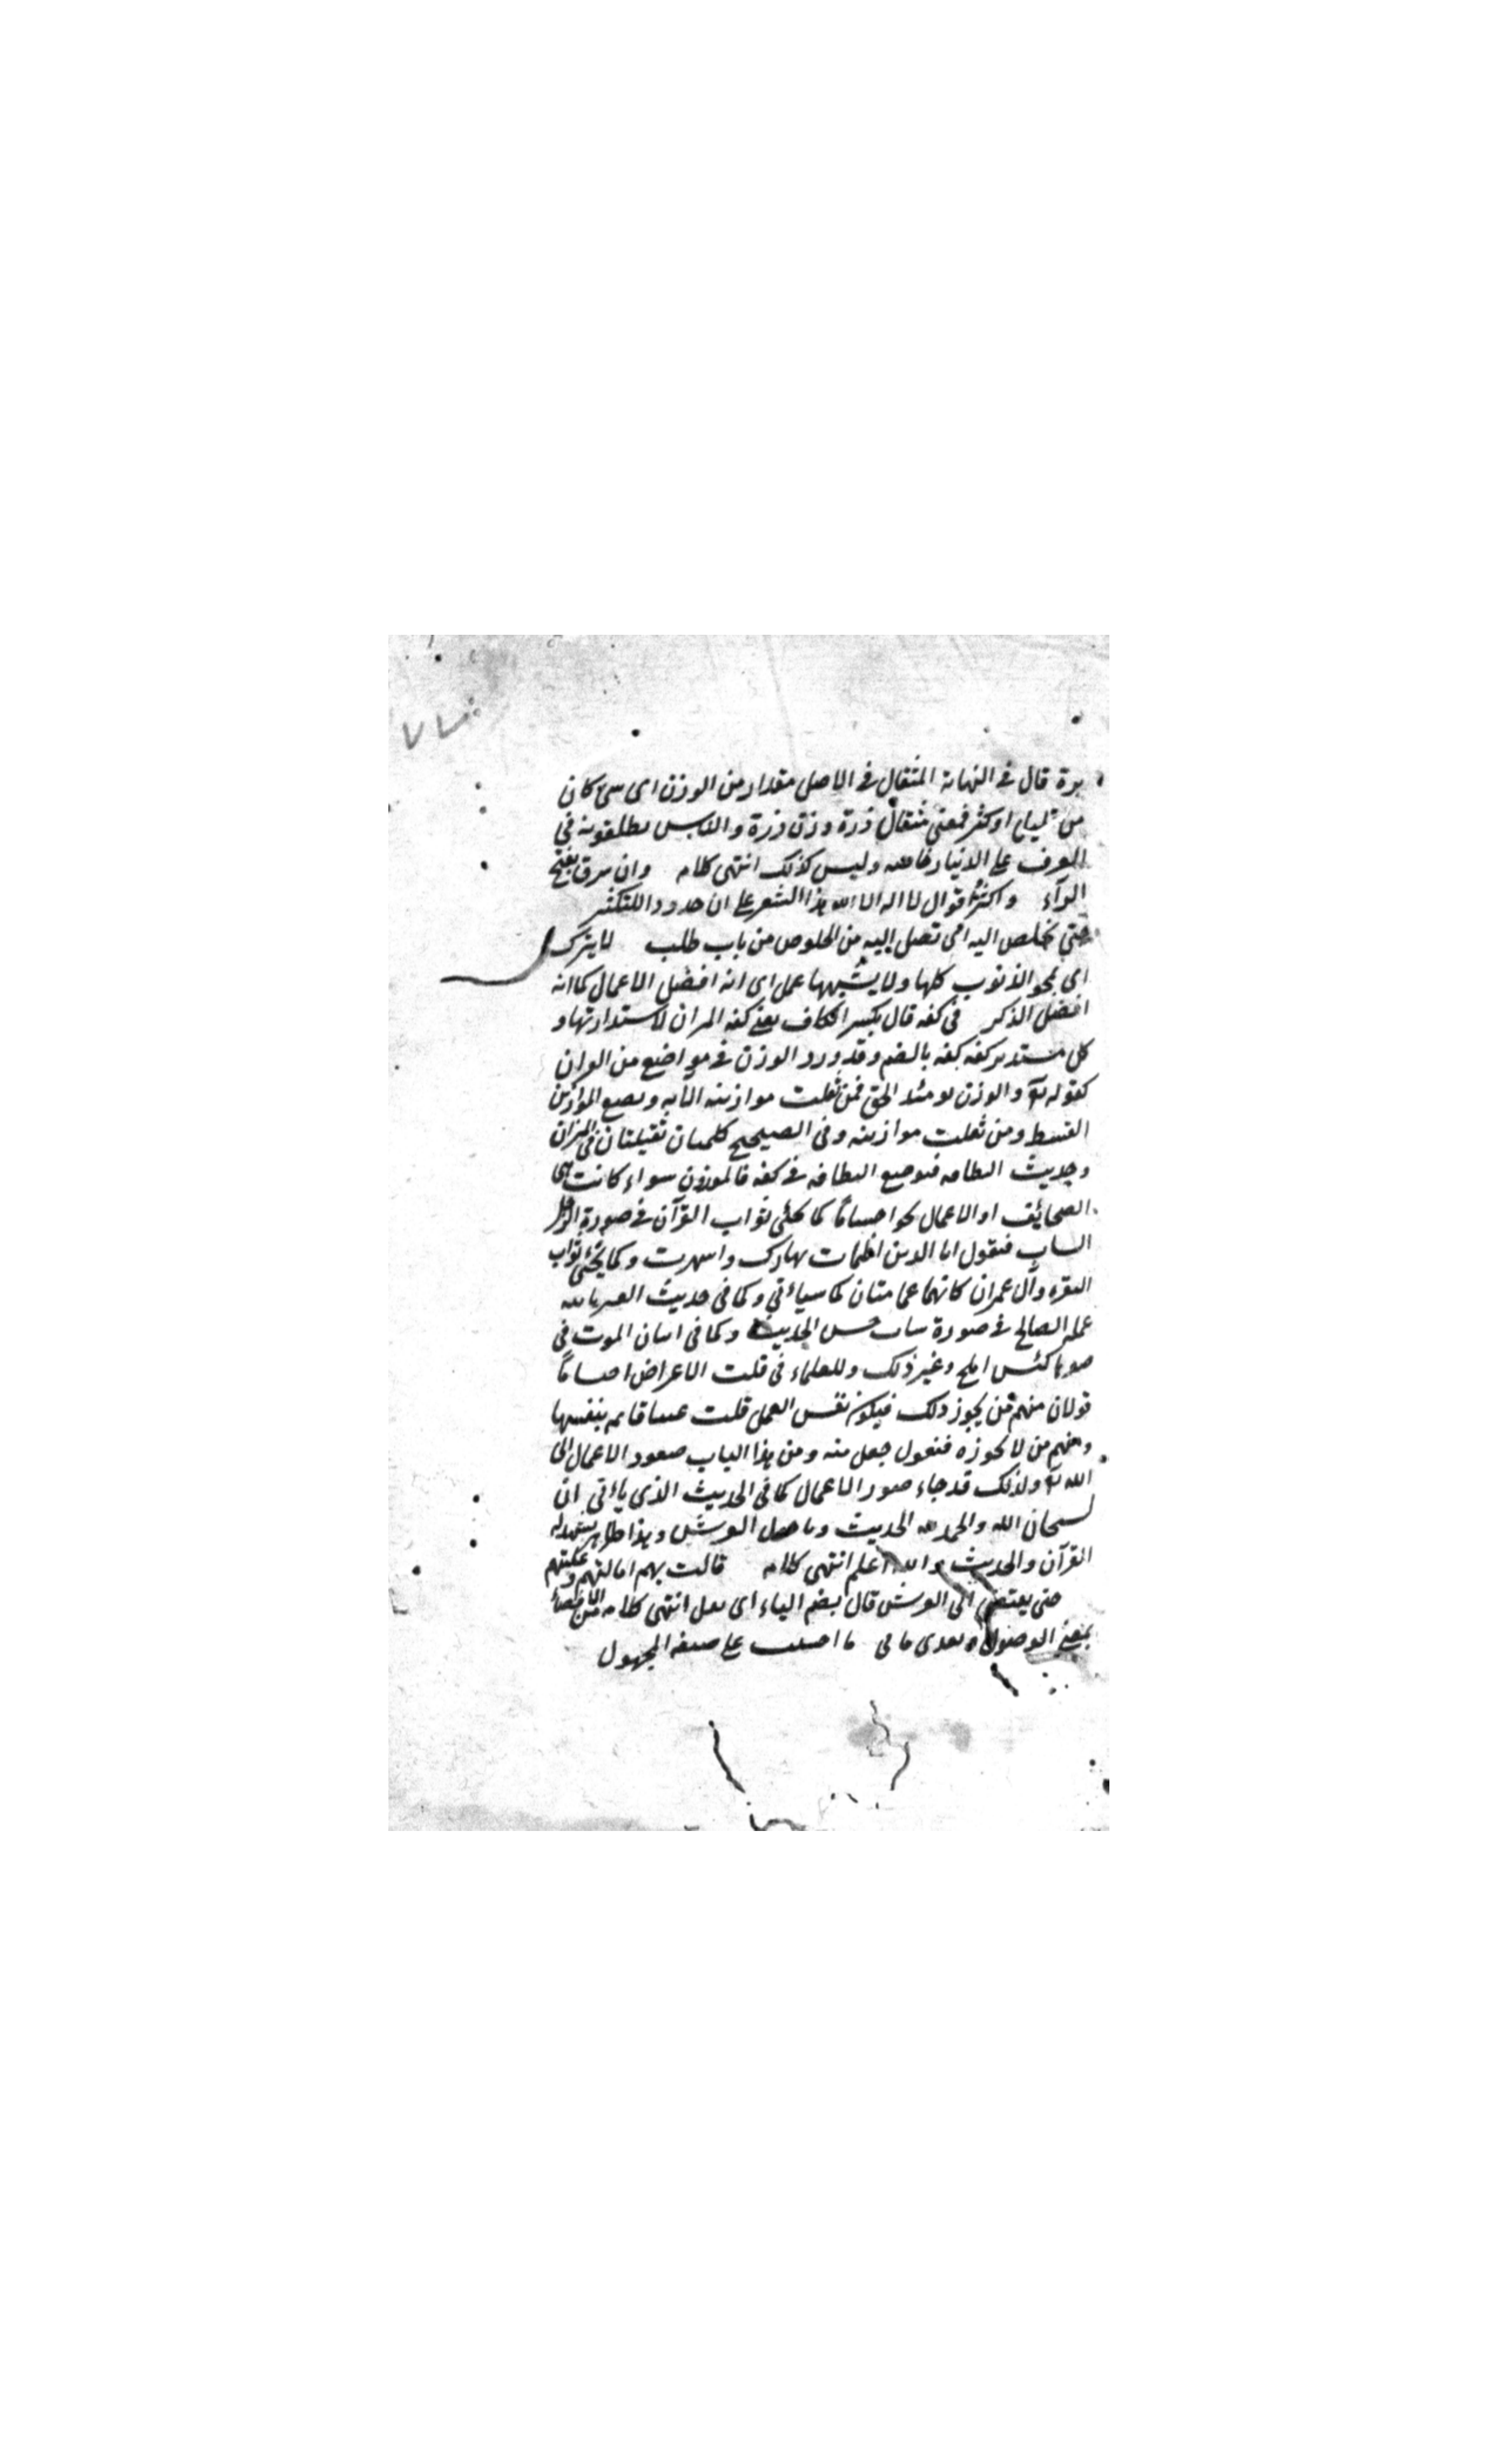 ٧٧
برة قال في النهاية المثقال في الاصل مقدار من الوزن اى شئ كان
من قليل او كثير فمعنى مثقال ذرة وزن ذرة والناس يطلقونه في
العرف على الدينار خاصة وليس كذلك انتهى كلامه وان سرق بفتح
الرآء واكثروا قول لا اله الا الله هذا الشعر على ان حدود اللتكثير
حتى تخلص اليه اى تصل إليه من الخلوص من باب طلب لا يترك
اى يمحو الذنوب كلها ولا يشبهها عمل اى انه افضل الاعمال كما انه
افضل الذكر في كفه قال بكسر الكاف يعنى كفه الميزان لاستدارتها و
كل مستدير كفه كفه بالضم وقد ورد الوزن في مواضع من القران
كقوله تع والوزن يومئذ الحق فمن ثقلت موازينه الايه ويضع الموازين
القسط ومن ثقلت موازينه وفي الصحيح كلمتان ثقيلتان في الميزان
وحديث البطاقه فتوضع البطاقه في كفه فالموزون سواء كانت هى
الصحائف او الاعمال اجساما كما يجئ ثواب القرآن في صورة الرجل
الشاب فيقول انا الذين اظمات نهارك واسهرت وكما يجئ ثواب
البقره وآل عمران كانهما غمامتان كما سيأتي وكما في حديث القبر
عمله الصالح في صورة شاب حسن الحديث وكما في اتيان الموت في
كبش املح وغير ذلك وللعلماء في قلب الاعراض اجساما
قولان منهم من يجوز ذلك فيكون نفس العمل قلبت قايمه بنفسها
ومنهم من لا يجوزه فنقول جعل منه ومن هذا الباب صعود الاعمال الى
الله تع ولذلك قد جاء صور الاعمال كما في الحديث الذى يأتي ان
لسبحان الله والحمد لله الحديث وما حول العرش وهذا ظاهر يشهد له
القرآن والحديث والله اعلم انتهى كلامه قالت بهم امالتهم و غلبتهم
حتى يفضى الى العرش قال بضم الياء اى يصل انتهى كلامه من الافضاء
بمعنى الوصول ويعدى بالى ما اجتنبت على صيغه المجهول